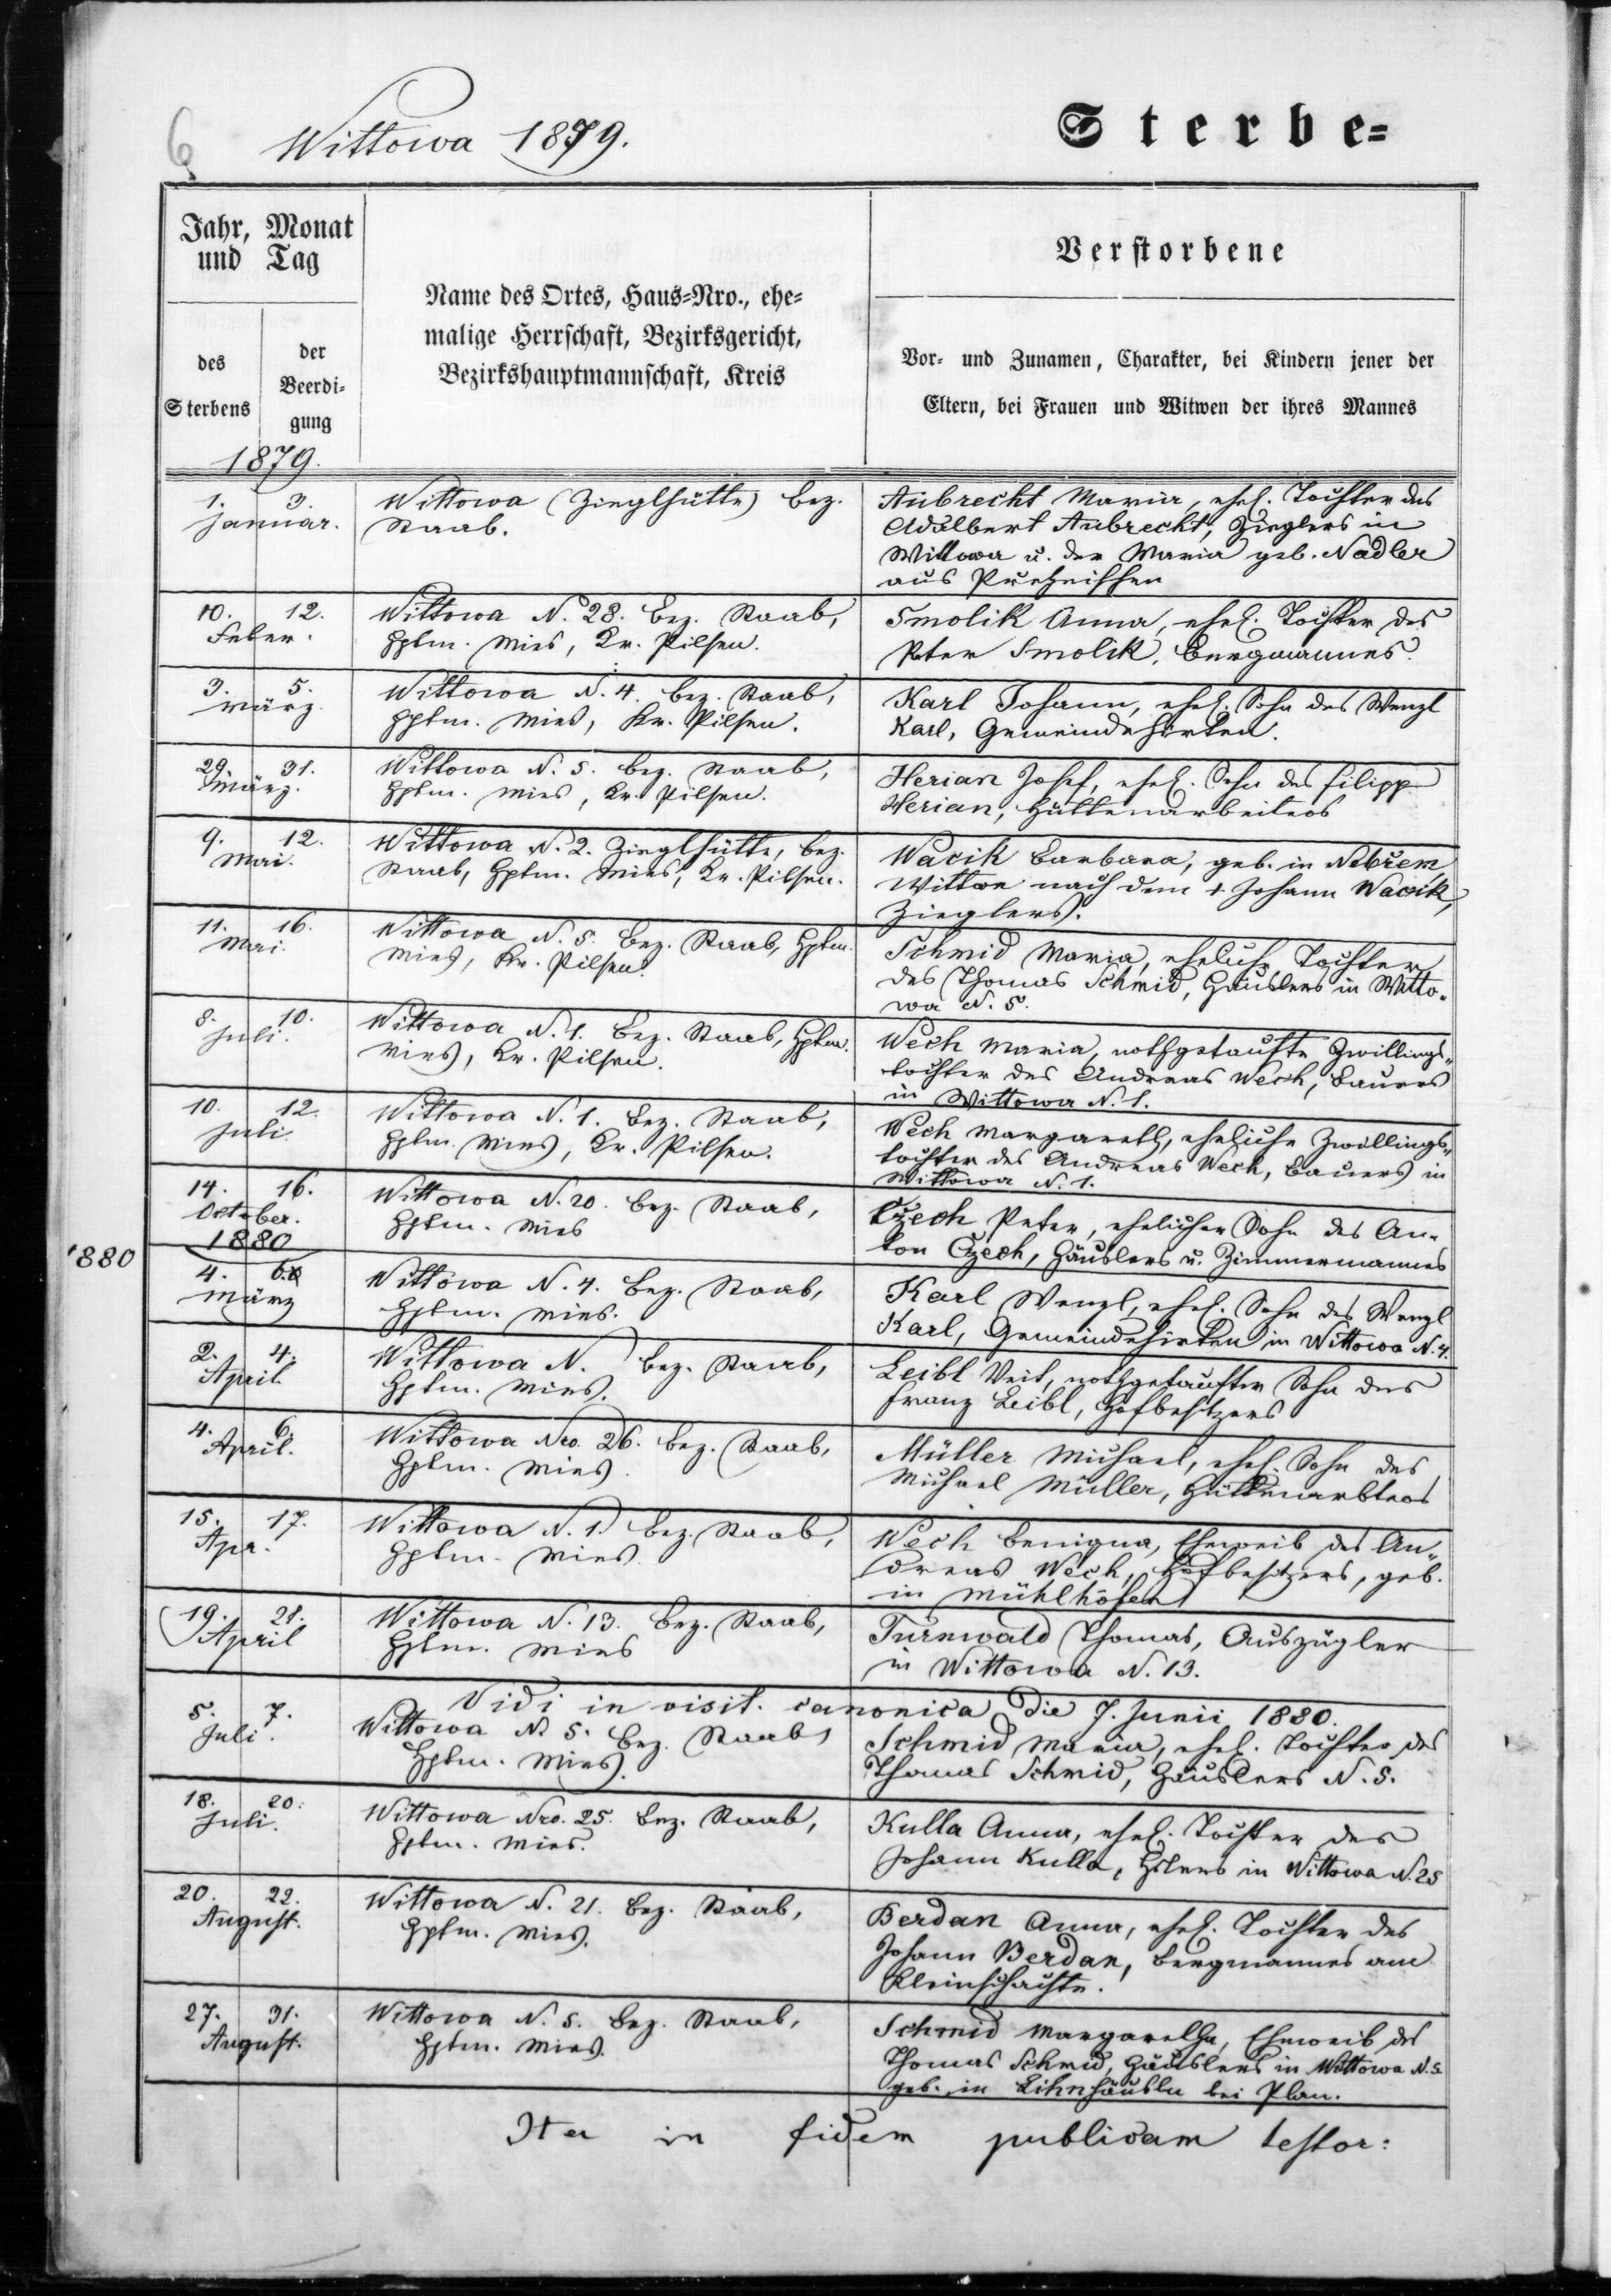 6
Wittowa 1879.
Sterbe=
Jahr, Monat
und Tag
des
Sterbens
der
Beerdi-
gung
Name des Ortes, Haus=Nro., ehe=
malige Herrschaft, Bezirksgericht,
Bezirkshauptmannschaft, Kreis
Verstorbene
Vor- und Zunamen, Charakter, bei Kindern jener der
Eltern, bei Frauen und Witwen der ihres Mannes
1879.
1. 3.
Januar.
Wittowa (Zieglhütte) bez.
Staab.
Aubrecht Maria, ehel. Tochter des
Adalbert Aubrecht, Zieglers in
Wittowa u. der Maria geb. Nadler
aus
10. 12.
Feber.
Wittowa N. 28. bez. Staab,
Hptm. Mies, Kr. Pilsen.
Smolik Anna, ehel. Tochter des
Peter Smolik, Bergmannes.
3. 5.
März.
Wittowa N. 4. bez. Staab,
Hptm. Mies, Kr. Pilsen.
Karl Johann, ehel. Sohn des Wenzl
Karl, Gemeindehirten.
29. 31.
März.
Wittowa N. 5. bez. Staab,
Hptm. Mies, Kr. Pilsen.
Herian Josef, ehel. Sohn des Filipp
Herian, Hüttenarbeiters
9. 12.
Mai.
Wittowa N. 2. Zieglhütte, bez.
Staab, Hptm. Mies, Kr. Pilsen.
Wacik Barbara, geb. in Nebřem
Wittwe nach dem + Johann Wacik,
Zieglers.
11. 16.
Mai.
Wittowa N. 5. bez. Staab, Hptm.
Mies, Kr. Pilsen.
Schmid Maria, eheliche Tochter
des Thomas Schmid, Häuslers in Witto-
wa N. 5.
8. 10.
Juli.
Wittowa N. 1. bez. Staab, Hptm.
Mies, Kr. Pilsen.
Wech Maria, nothgetaufte Zwillings-
tochter des Andreas Wech, Bauers
in Wittowa N. 1.
10. 12.
Juli.
Wittowa N. 1. bez. Staab,
Hptm. Mies, Kr. Pilsen.
Wech Margareth, eheliche Zwillings-
tochter des Andreas Wech, Bauers in
Wittowa N. 1.
14. 16.
October.
Wittowa N. 20. bez. Staab,
Hptm. Mies
Czech Peter, ehelicher Sohn des An-
ton Czech, Häuslers u. Zimmermannes
1880
1880
4. 6.
März
Wittowa N. 4. bez. Staab,
Hptm. Mies.
Karl Wenzl, ehel. Sohn des Wenzl
Karl, Gemeindehirten in Wittowa N. 4.
2. 4.
April
Wittowa N. bez. Staab,
Hptm. Mies.
Leibl Veit, nothgetaufter Sohn des
Franz Leibl, Hofbesitzers
4. 6.
April.
Wittowa Nro. 26. bez. Staab,
Hptm. Mies.
Müller Michael, ehel. Sohn des
Michael Müller, Hüttenarbters
15. 17.
Apr.
Wittowa N. 1. bez. Staab,
Hptm. Mies.
Wech Benigna, Eheweib des An-
dreas Wech, Hofbesitzers, geb.
in Mühlhöfen
19. 21.
April
Wittowa N. 13. bez. Staab,
Hptm. Mies
Turnwald Thomas, Auszügler
in Wittowa N. 13.
Vidi in visit. canonica die 7. Junii 1880.
5. 7.
Juli.
Wittowa N. 5. bez. Staab,
Hptm. Mies.
Schmid Maria, ehel. Tochter des
Thomas Schmid, Häuslers N. 5.
18. 20.
Juli.
Wittowa Nro. 25. bez. Staab,
Hptm. Mies.
Kulla Anna, ehel. Tochter des
Johann Kulla, in Wittowa N. 25
20. 22.
August.
Wittowa N. 21. bez. Staab,
Hptm. Mies.
Berdan Anna, ehel. Tochter des
Johann Berdan, Bergmannes am
Kleinschachte.
27. 31.
August.
Wittowa N. 5. bez. Staab,
Hptm. Mies.
Schmid Margaretha, Eheweib des
Thomas Schmid, Häuslers in Wittowa N. 5
geb. in bei Plan.
Ita in fidem publicam testor: